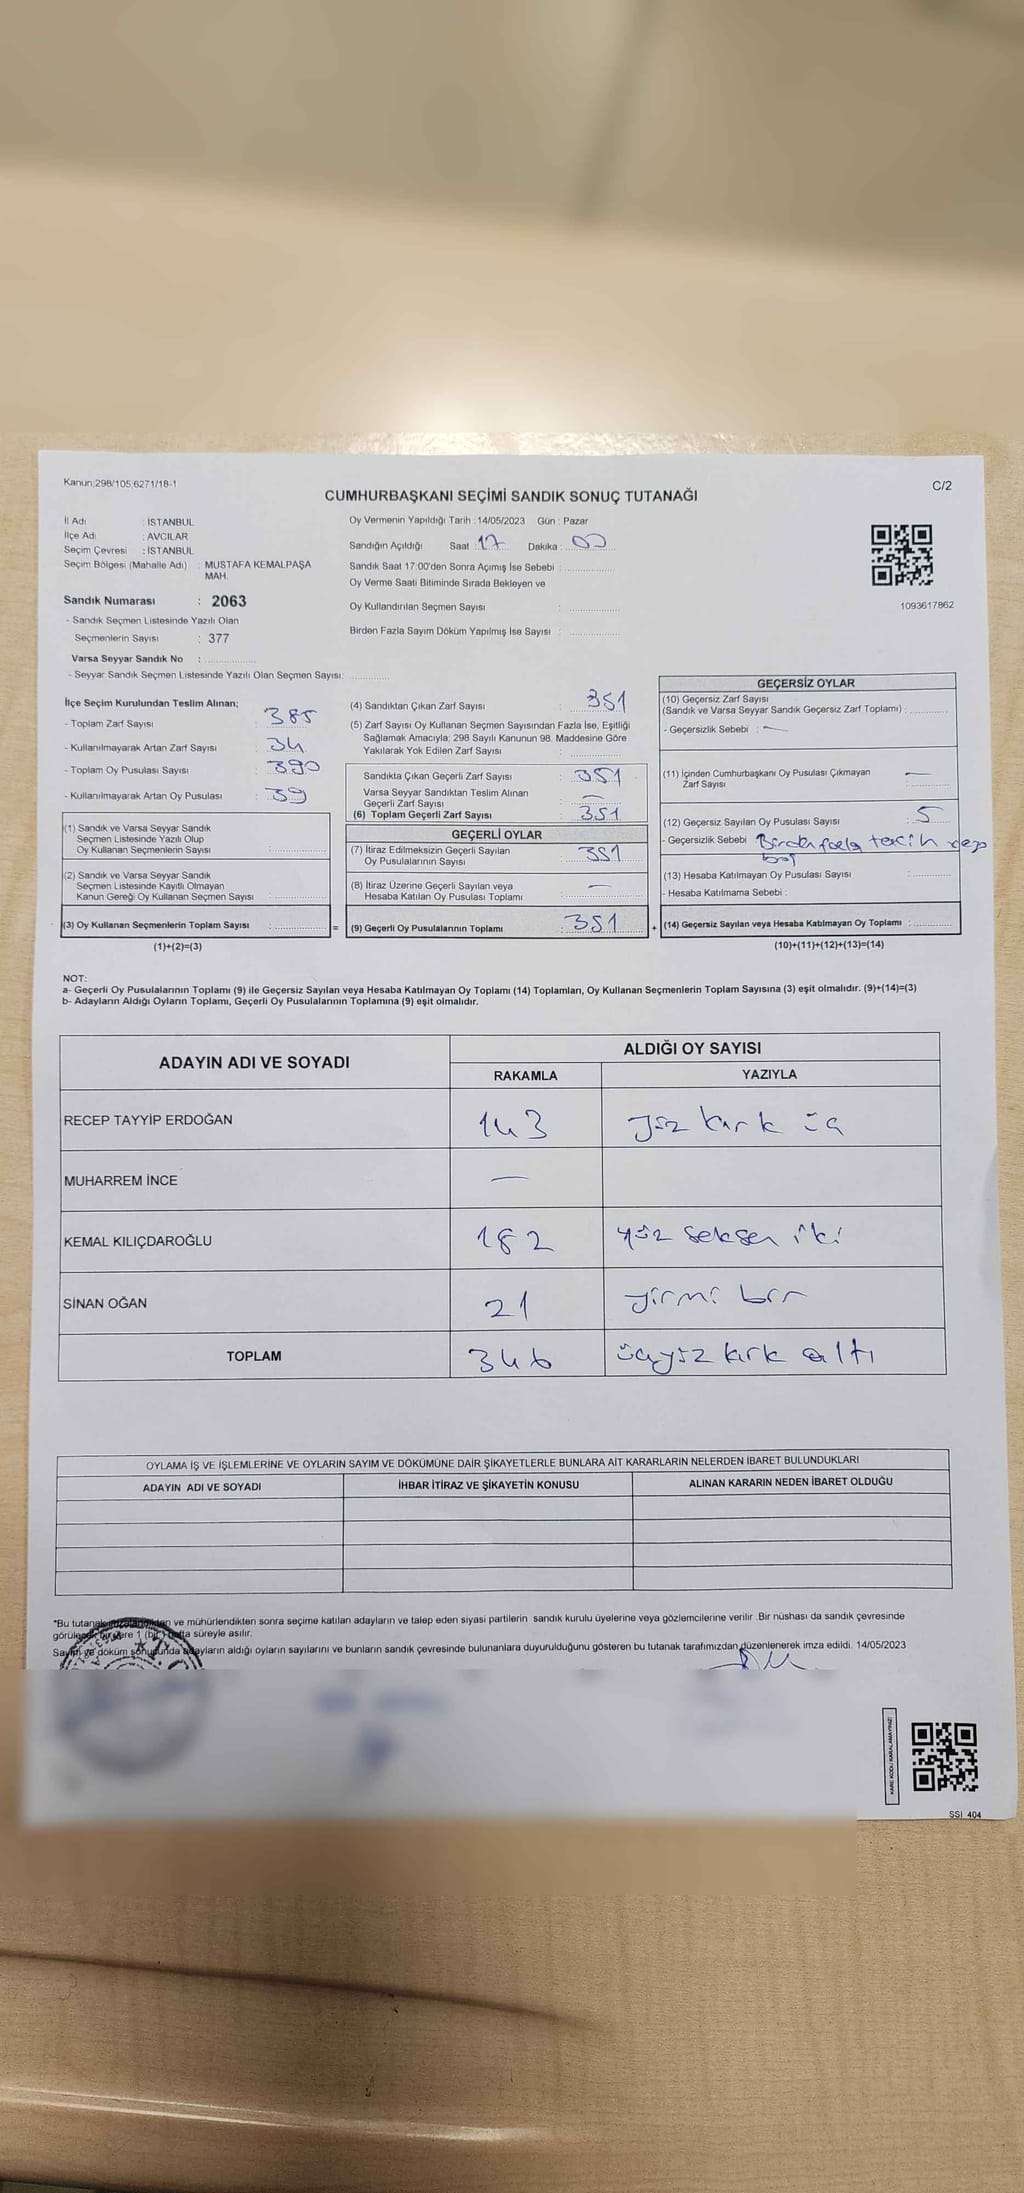 Kanun:298/105,6271/18-1
C/2
CUMHURBAŞKANI SEÇİMİ SANDIK SONUÇ TUTANAĞI
İl Adı : İSTANBUL
İlçe Adı : AVCILAR
Seçim Çevresi : İSTANBUL
Seçim Bölgesi (Mahalle Adı) : MUSTAFA KEMALPAŞA
MAH.
Sandık Numarası : 2063
- Sandık Seçmen Listesinde Yazılı Olan
Seçmenlerin Sayısı : 377
Varsa Seyyar Sandık No :
- Seyyar Sandık Seçmen Listesinde Yazılı Olan Seçmen Sayısı:
Oy Vermenin Yapıldığı Tarih : 14/05/2023 Gün : Pazar
Sandığın Açıldığı Saat : 17 Dakika : 00
Sandık Saat 17:00'den Sonra Açımış İse Sebebi :
Oy Verme Saati Bitiminde Sırada Bekleyen ve
Oy Kullandırılan Seçmen Sayısı :
Birden Fazla Sayım Döküm Yapılmış İse Sayısı :
1093617862
İlçe Seçim Kurulundan Teslim Alınan;
- Toplam Zarf Sayısı : 385
- Kullanılmayarak Artan Zarf Sayısı : 34
- Toplam Oy Pusulası Sayısı : 390
- Kullanılmayarak Artan Oy Pusulası : 39
(1) Sandık ve Varsa Seyyar Sandık
Seçmen Listesinde Yazılı Olup
Oy Kullanan Seçmenlerin Sayısı :
(2) Sandık ve Varsa Seyyar Sandık
Seçmen Listesinde Kayıtlı Olmayan
Kanun Gereği Oy Kullanan Seçmen Sayısı :
(3) Oy Kullanan Seçmenlerin Toplam Sayısı :
(1)+(2)=(3)
=
(4) Sandıktan Çıkan Zarf Sayısı : 351
(5) Zarf Sayısı Oy Kullanan Seçmen Sayısından Fazla İse, Eşitliği
Sağlamak Amacıyla; 298 Sayılı Kanunun 98. Maddesine Göre
Yakılarak Yok Edilen Zarf Sayısı :
Sandıkta Çıkan Geçerli Zarf Sayısı : 351
Varsa Seyyar Sandıktan Teslim Alınan
Geçerli Zarf Sayısı : —
(6) Toplam Geçerli Zarf Sayısı : 351
GEÇERLİ OYLAR
(7) İtiraz Edilmeksizin Geçerli Sayılan
Oy Pusulalarının Sayısı : 351
(8) İtiraz Üzerine Geçerli Sayılan veya
Hesaba Katılan Oy Pusulası Toplamı : —
(9) Geçerli Oy Pusulalarının Toplamı : 351
+
GEÇERSİZ OYLAR
(10) Geçersiz Zarf Sayısı
(Sandık ve Varsa Seyyar Sandık Geçersiz Zarf Toplamı) :
- Geçersizlik Sebebi : —
(11) İçinden Cumhurbaşkanı Oy Pusulası Çıkmayan
Zarf Sayısı : —
(12) Geçersiz Sayılan Oy Pusulası Sayısı : 5
- Geçersizlik Sebebi
(13) Hesaba Katılmayan Oy Pusulası Sayısı :
- Hesaba Katılmama Sebebi :
(14) Geçersiz Sayılan veya Hesaba Katılmayan Oy Toplamı :
(10)+(11)+(12)+(13)=(14)
NOT:
a- Geçerli Oy Pusulalarının Toplamı (9) ile Geçersiz Sayılan veya Hesaba Katılmayan Oy Toplamı (14) Toplamları, Oy Kullanan Seçmenlerin Toplam Sayısına (3) eşit olmalıdır. (9)+(14)=(3)
b- Adayların Aldığı Oyların Toplamı, Geçerli Oy Pusulalarının Toplamına (9) eşit olmalıdır.
ADAYIN ADI VE SOYADI
ALDIĞI OY SAYISI
RAKAMLA YAZIYLA
RECEP TAYYİP ERDOĞAN 143 yüz kırk üç
MUHARREM İNCE —
KEMAL KILIÇDAROĞLU 182 yüz seksen iki
SİNAN OĞAN 21 yirmi bir
TOPLAM 346 üçyüz kırk altı
OYLAMA İŞ VE İŞLEMLERİNE VE OYLARIN SAYIM VE DÖKÜMÜNE DAİR ŞİKAYETLERLE BUNLARA AİT KARARLARIN NELERDEN İBARET BULUNDUKLARI
ADAYIN ADI VE SOYADI İHBAR İTİRAZ VE ŞİKAYETİN KONUSU ALINAN KARARIN NEDEN İBARET OLDUĞU
*Bu tutanak ve mühürlendikten sonra seçime katılan adayların ve talep eden siyasi partilerin sandık kurulu üyelerine veya gözlemcilerine verilir .Bir nüshası da sandık çevresinde
görülecek bir yere 1 (bir) hafta süreyle asılır.
Sayım ve döküm sonucunda adayların aldığı oyların sayılarını ve bunların sandık çevresinde bulunanlara duyurulduğunu gösteren bu tutanak tarafımızdan düzenlenerek imza edildi. 14/05/2023
KARE KODU KARALAMAYINIZ!
SSI 404